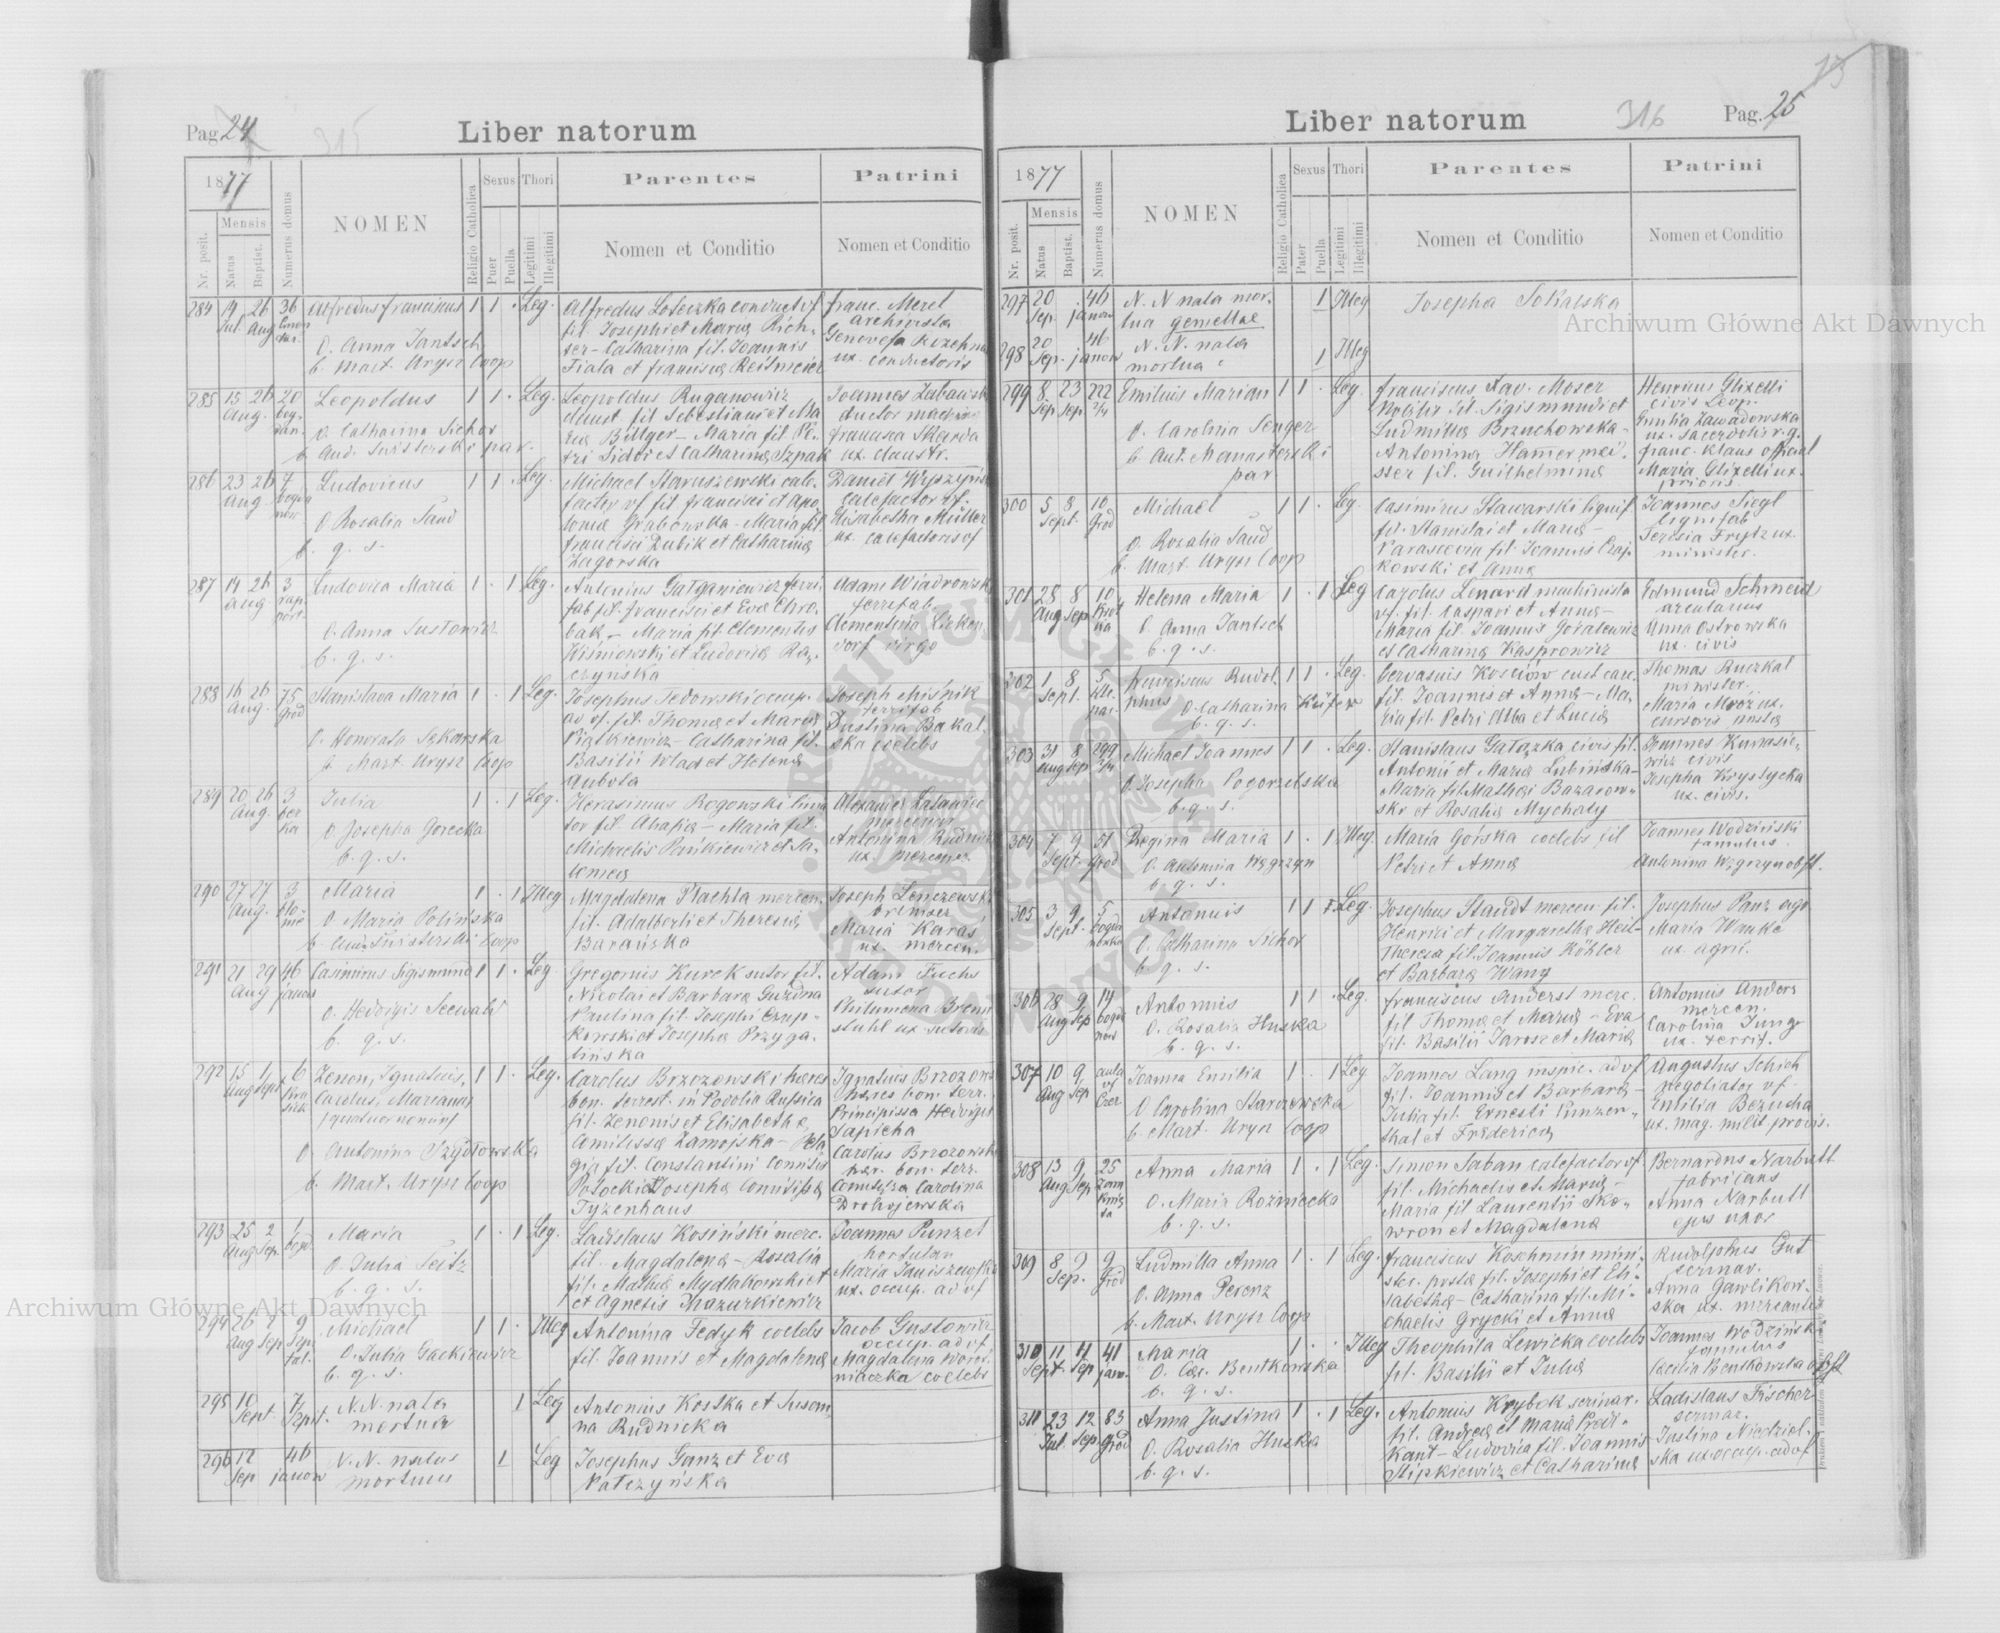 Pag. 24
315
Liber natorum
1877
Mensis
Nr. posit.
Natus
Baptist.
Numerus domus
NOMEN
Religio Catholica
Sexus
Puer
Puella
Thori
Legitimi
Illegitimi
Parentes
Nomen et Conditio
Patrini
Nomen et Conditio
284 19 Jul. 26 Aug 36
Alfredus Franciscus 1 1 . Leg.
O. Anna Jantsch
b. Mart. Urysz Coop
Alfredus Loteczka conduct vf
fil. Josephi et Maria Rich-
ter - Catharina fil. Joannis
Fiala et Francisca Reitmeier
Franc. Merel
archivista
Genovefa
ux. conductoris
285 15 Aug. 26 20
Leopoldus 1 1 . Leg.
O. Catharina Sichor
b. And. Swisterski par.
Leopoldus Ruganowicz
claust fil Sebestiani et Ma
ria Bittger - Maria fil. Pe-
tri Sidoi et Catharina Szpak
Joannes
ductor machine
Francisca Skarda
ux. claustr.
286 23 Aug 26 7
Ludovicus 1 1 . Leg.
O Rosalia Saud
b. q. s.
Michael Staruszewski cale-
factor vf fil Francisci et Apo
lonia Grabowska - Maria fil
Francisci Dubik et Catharina
Zagorska
Daniel
calefactor vf.
Elisabetha Müller
ux. calefactoris vf
287 14 Aug 26 3
Ludovica Maria 1 . 1 Leg.
O. Anna Sustowicz
b. q. s.
Antonius Gatganiewicz ferri
fab fil. Francisci et Eva Chro-
bak - Maria fil. Clementis
Wisniowski et Ludovica Ra-
czyńska
Adam
ferrifab
Clementina
dorf virgo
288 16 Aug. 26 75 Grod
Stanislava Maria 1 . 1 Leg.
O. Honorata Sękowska
b. Mart. Urysz Coop
Josephus Tedowski occup.
ad vf. fil. Thoma et Maria
Piątkiewicz - Catharina fil.
Basilii Wlad et Helena
Joseph Miśnik
ferrifab
Justina Bakal-
ska coelebs
289 20 Aug. 26 3
Julia 1 . 1 Leg.
O Josepha Gorecka
b. q. s.
Herasimus Rogowski
tor fil. Ahafia - Maria fil.
Michaelis Pankiewicz et Sa-
lomea
Alexander
mercenar
Antonina
ux. mercenar.
290 27 Aug. 27 3
Maria 1 . 1 Illeg
O. Maria Polińska
b. And. Swisterski Coop
Magdalena Plachta mercen.
fil. Adalberti et Theresia
Barańska
Joseph Lenczewski
Maria Karaś
ux. mercen.
291 21 Aug 29 46 janow
Casimirus Sigismund 1 1 . Leg
O. Hedvigis Seewald
b. q. s.
Gregorius Kurek sutor fil.
Nicolai et Barbara Guzdna
Paulina fil. Josephi Czap-
kowski et Josepha Przyga-
lińska
Adam Fuchs
sutor
Philumena
stuhl ux sutoris
292 15 Aug 1 Sept 6
Zenon, Ignatius, 1 1 . Leg.
Carolus, Marianus
/quatuor nomin/
O Antonina Szydłowska
b. Mart. Urysz Coop
Carolus Brzozowski haeres
bon. terrest. in Podolia Russica
fil. Zenonis et Elisabetha
Comitissa Zamojska - Pela
gia fil. Constantini Comitis
Potocki et Josepha Comitissa
Tyzenhaus
Ignatius Brzozow
haeres bon. terr.
Principissa Hedvigis
Sapieha
Carolus Brzozowski
haer. bon. terr.
Comitissa Carolina
Drohojewska
293 25 Aug 2 Sep. 1
Maria 1 . 1 Leg.
O. Julia Seitz
b. q. s.
Ladislaus Kosiński merc.
fil. Magdalena - Rosalia
fil. Mathia Mydlakowski et
et Agnetis Mazurkiewicz
Joannes Punzet
hortulan
Maria Janiszewska
ux. occup. ad vf
294 26 Aug 2 Sep 9
Michael 1 1 . Illeg
O. Julia Gackiewicz
b. q. s.
Antonina Fedyk coelebs
fil. Joannis et Magdalena
Jacob Gustowicz
occup. ad vf
Magdalena
coelebs
295 10 Sept 7 Szpit.
N. N. nata 1 Leg
mortua
Antonius Kostka et Susan-
na Rudnicka
296 12 Sep 46 janow
N. N. natus 1 Leg
mortuus
Josephus Ganz et Eva
Patczyńska
Archiwum Główne Akt Dawnych
13
316
Pag. 25
Liber natorum
1877
Mensis
Nr. posit.
Natus
Baptist.
Numerus domus
NOMEN
Religio Catholica
Sexus
Pater
Puella
Thori
Legitimi
Illegitimi
Parentes
Nomen et Conditio
Patrini
Nomen et Conditio
297 20 Sep. 46 janow
N. N nata mor- 1 Illeg
tua gemellae
Josepha Sokalska
298 20 Sep. 46 janow
N. N. nata 1 Illeg
mortua
299 8 Sep 23 Sep. 222 2/4
Emilius Marian 1 1 . Leg.
O. Carolina Senger
b. Ant. Manasterski
par
Franciscus Xav. Moser
Nobilis fil. Sigismundi et
Ludmilla Brzuchowska -
Antonina Hamermei-
ster fil. Guilhelmina
Henricus Glixelli
civis Leop.
Emilia Zawadowska
ux. sacerdotis r. g.
Franc. Klaus official
Maria Glixelli ux.
prioris
300 5 Sept. 8 10 Grod
Michael 1 1 . Leg.
O. Rosalia Saud
b. Mart. Urysz Coop
Casimirus Stawarski lignif
fil. Stanislai et Maria -
Parascevia fil. Joannis Czaj-
kowski et Anna
Joannes Siegl
lignifab
Teresia Frytz ux.
minister.
301 25 Aug 8 Sep 10
Helena Maria 1 . 1 Leg
O. Anna Jantsch
b. q. s.
Carolus Lenard machinista
vf. fil. Caspari et Anna -
Maria fil. Joannis Goralewicz
et Catharina Kasprowicz
Edmund Schmeid
arcularius
Anna Ostrowska
ux. civis
302 1 Sept. 8 5
Henricus Rudol- 1 1 . Leg.
phus O. Catharina Küfer
b. q. s.
Gervasius Kosciow cust carc.
fil. Joannis et Anna - Ma-
ria fil. Petri Alba et Lucia
Thomas Ruczkal
minister.
Maria Mroz ux.
cursoris posta
303 31 Aug 8 Sep 299 2/4
Michael Joannes 1 1 . Leg.
O. Josepha Pogorzelska
b. q. s.
Stanislaus Gałązka civis fil.
Antonii et Maria Lubińska -
Maria fil Mathai Bazarow-
ski et Rosalia Mychaty
Joannes Kunasie-
wicz civis
Josepha Krystycka
ux. civis.
304 7 Sept. 9 51 Grod
Regina Maria 1 . 1 Illeg.
O. Antonina Węgrzyn
b. q. s.
Maria Gorska coelebs fil
Petri et Anna
Joannes Wodziński
famulus
Antonina Węgrzyn obst.
305 3 Sept. 9 5
Antonius 1 1 Leg.
O. Catharina Sichor
b. q. s.
Josephus Staudt mercen. fil.
Henrici et Margaretha Heil-
Theresia fil. Joannis Köhler
et Barbara Wang
Josephus Panz agr.
Maria Wanke
ux. agric.
306 28 Aug 9 Sep 14
Antonius 1 1 . Leg.
O. Rosalia Huska
b. q. s.
Franciscus Anderst merc.
fil Thoma et Maria - Eva
fil. Basilii Jarosz et Maria
Antonius Anders
mercen.
Carolina Jung
ux. ferrif.
307 10 Aug 9 Sep
Joanna Emilia 1 . 1 Leg
O Carolina Starczewska
b. Mart. Urysz Coop
Joannes Lang inspic. ad vf
fil. Joannis et Barbara -
Julia fil. Ernesti Linzen-
thal et Friderica
Augustus Schich
negotiator vf.
Emilia Bezucha
ux. mag. milit provis.
308 13 Aug 9 Sep 25
Anna Maria 1 . 1 Leg.
O. Maria Roźniecka
b. q. s.
Simon Saban calefactor vf
fil. Michaelis et Maria -
Maria fil Laurentii Sko-
wron et Magdalena
Bernardus Narbutt
fabricans
Anna Narbutt
ejus uxor
309 8 Sep. 9 9 Grod
Ludmilla Anna 1 . 1 Leg.
O. Anna Perenz
b. Mart. Urysz Coop
Franciscus Koschmin mini-
ster. posta fil. Josephi et Eli-
sabetha - Catharina fil. Mi-
chaelis Grycki et Anna
Rudolphus Gut
scrinar.
Anna Gawlikow-
ska ux. mercantis
310 11 Sept. 11 Sep 41 jan.
Maria 1 . . Illeg
O. Cec. Bentkowska
b. q. s.
Theophila Lewicka coelebs
fil. Basilii et Julia
Joannes Wodziński
famulus
Cecilia Bentkowska obst
311 23 Jul. 12 Sep. 83 Grod
Anna Justina 1 . 1 Leg.
O. Rosalia Huska
b. q. s.
Antonius Krybok scrinar.
fil. Andrea et Maria Prediʼ
kant - Ludovica fil. Joannis
Slipkiewicz et Catharina
Ladislaus Fischer
scrinar.
Justina Niedziel-
ska ux. occup. ad vf
Archiwum Główne Akt Dawnych
ARCHIWUM GŁÓWNE AKT DAWNYCH